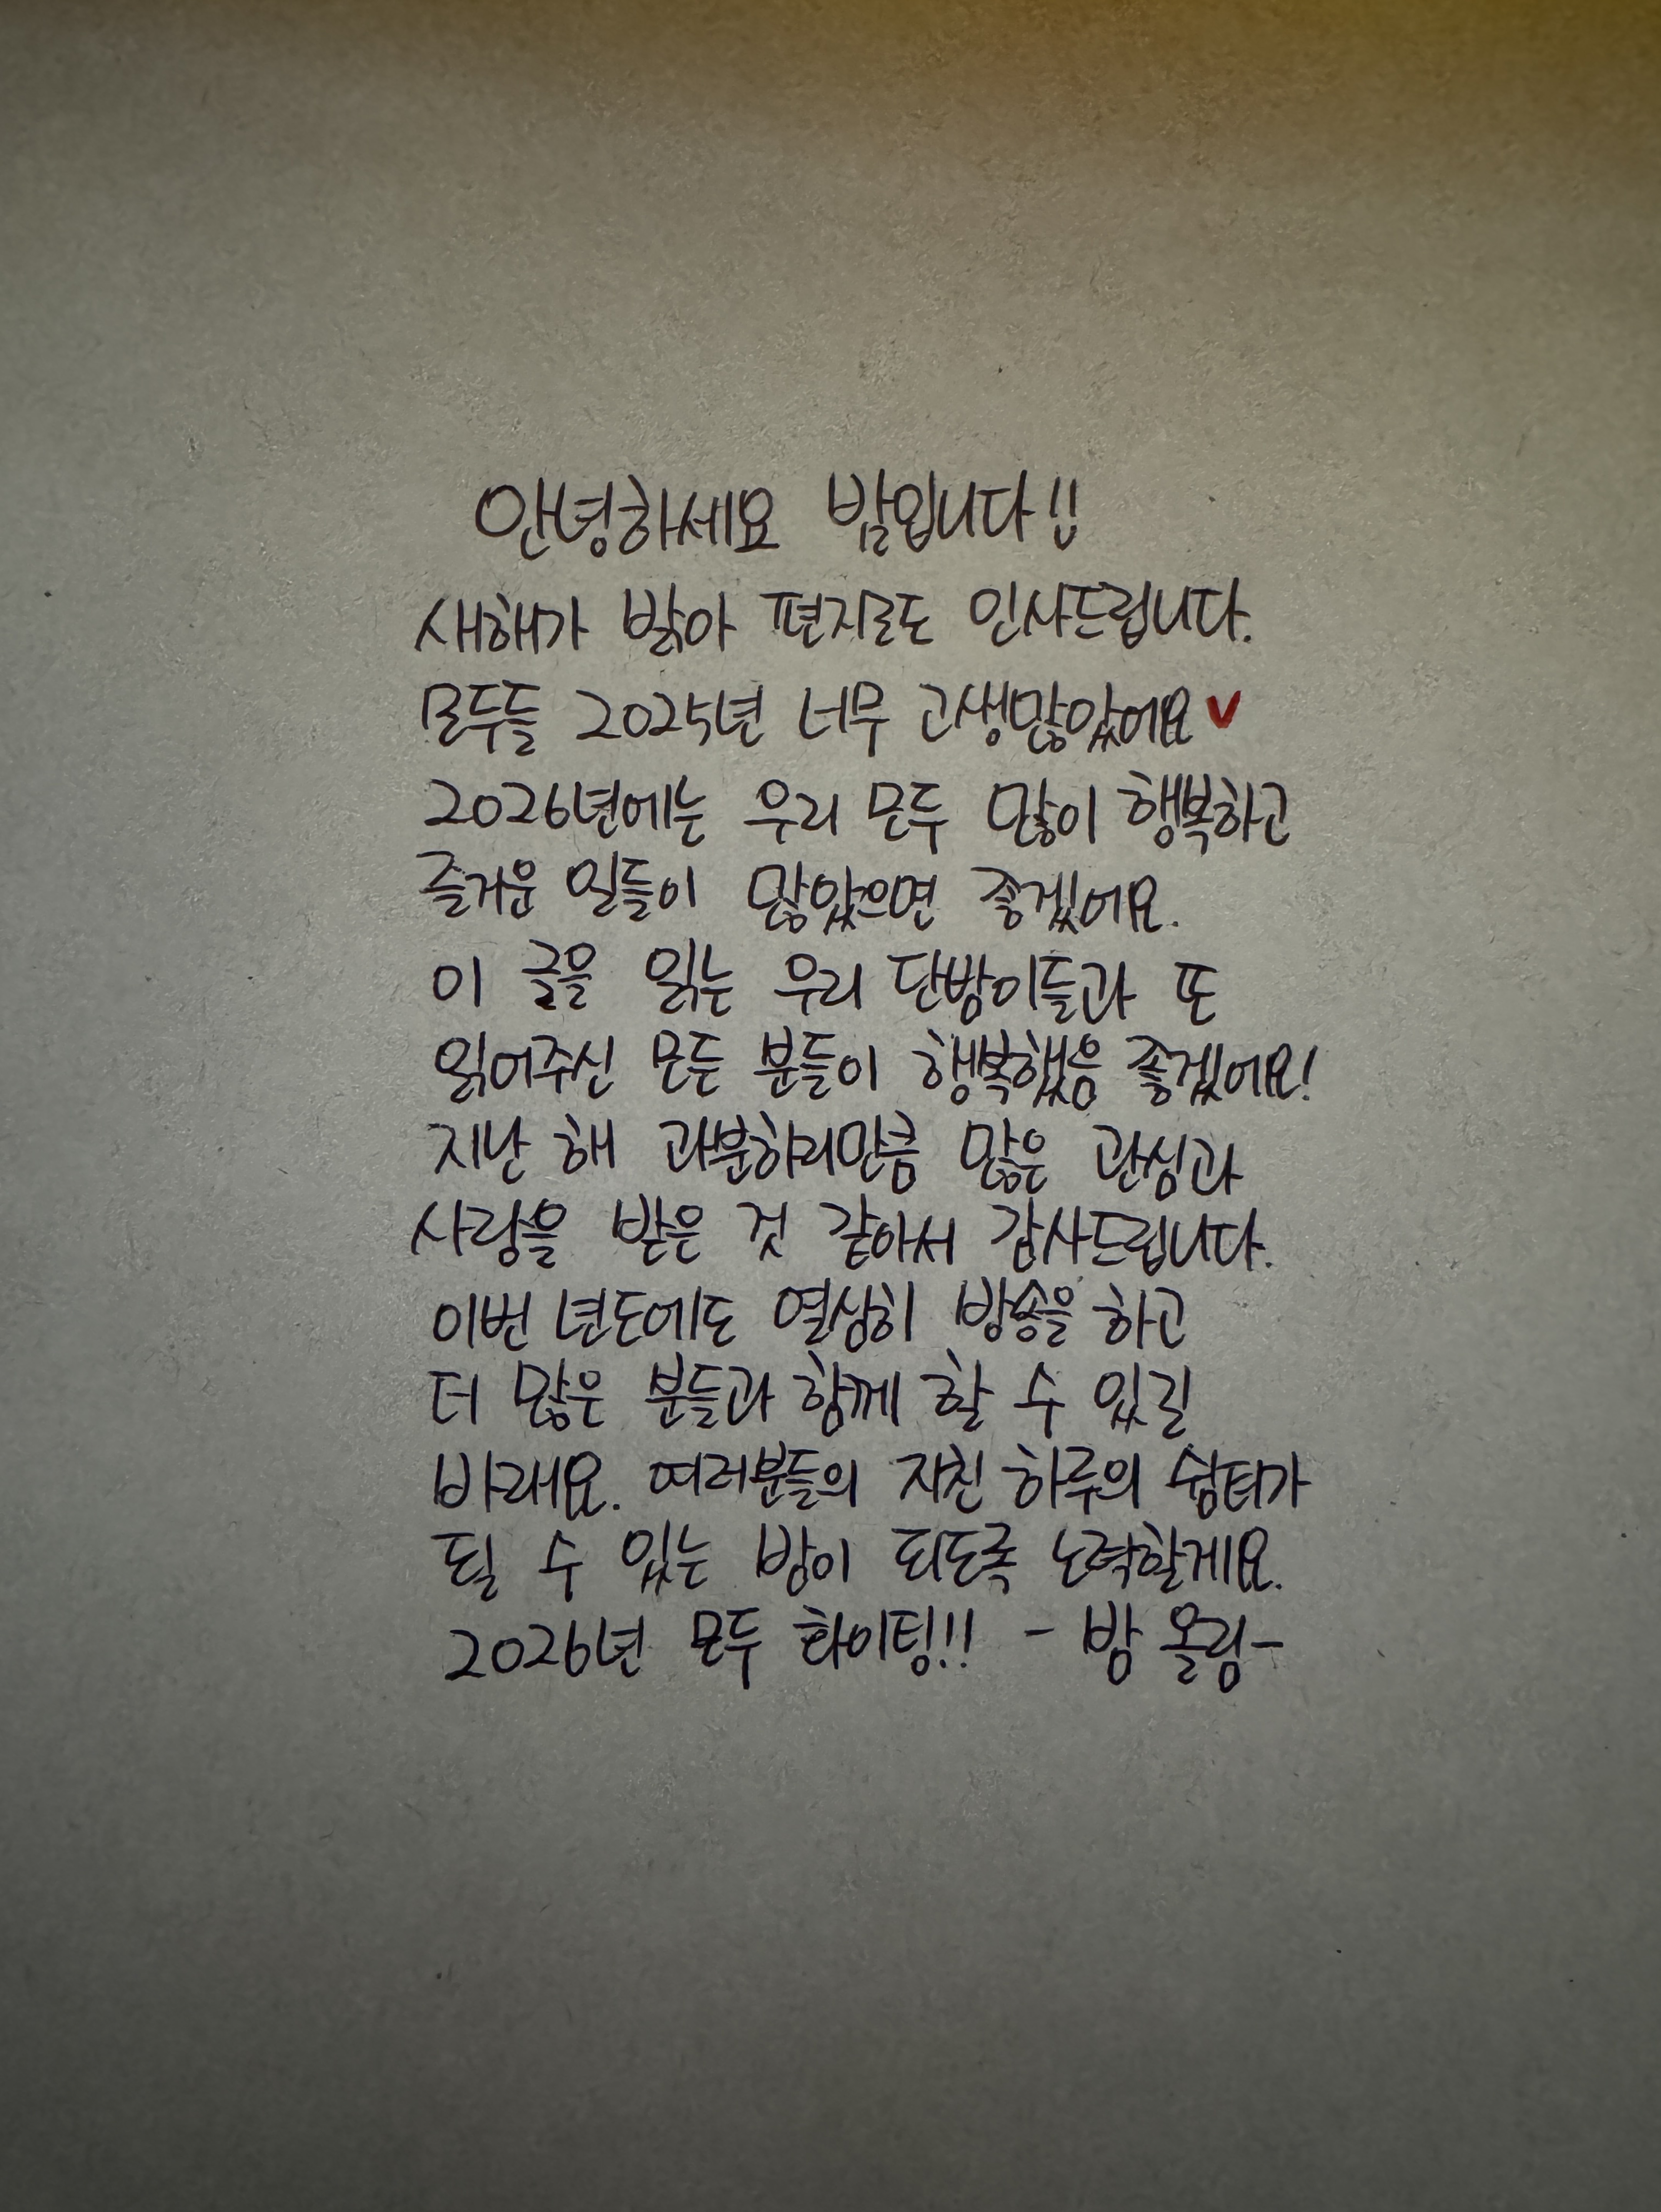 안녕하세요 밤입니다!!
새해가 밝아 편지로도 인사드립니다.
모두들 2025년 너무 고생많았어요♥
2026년에는 우리 모두 많이 행복하고
즐거운 일들이 많았으면 좋겠어요.
이 글을 읽는 우리 단밤이들과 또
읽어주신 모든 분들이 행복했음 좋겠어요!
지난 해 과분하리만큼 많은 관심과
사랑을 받은 것 같아서 감사드립니다.
이번 년도에도 열심히 방송을 하고
더 많은 분들과 함께 할 수 있길
바래요. 여러분들의 지친 하루의 쉼터가
될 수 있는 밤이 되도록 노력할게요.
2026년 모두 화이팅!! - 밤 올림-